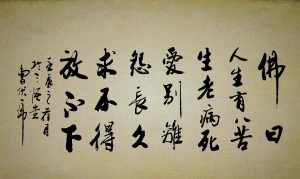 佛曰
人生有八苦
生老病死
爱別離
怨長久
求不得
放不下